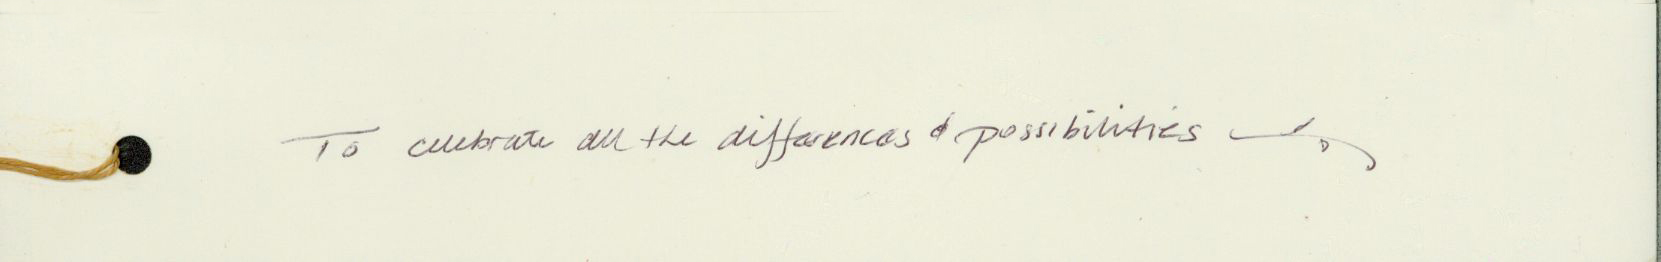 To celebrate all the differences & possibilities